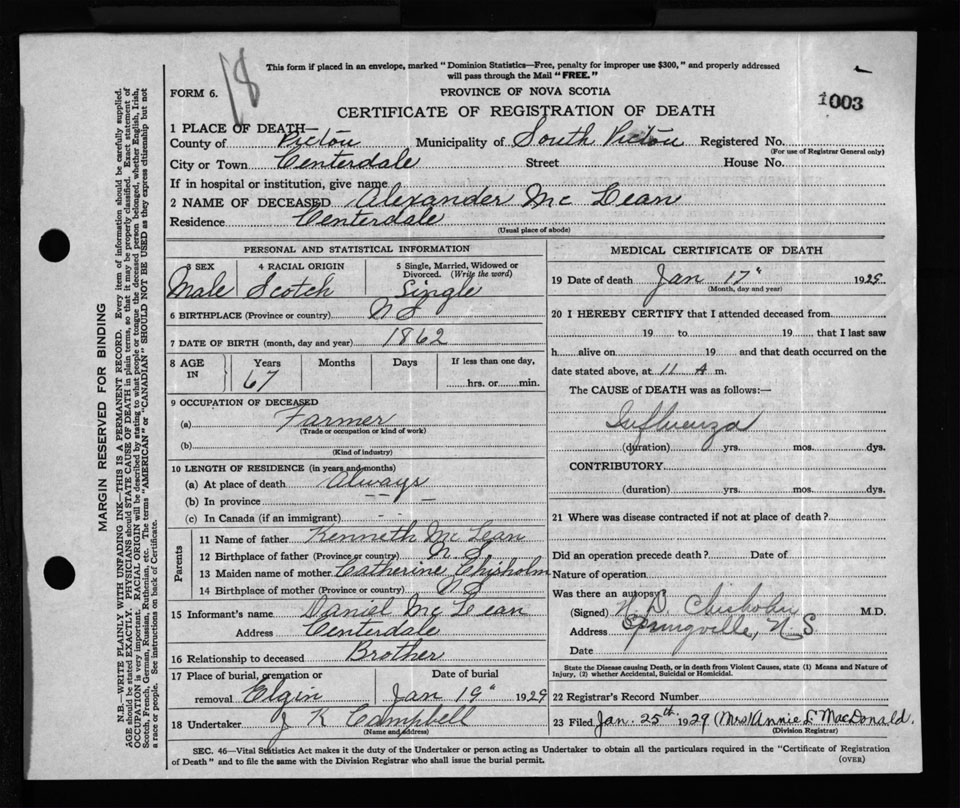 18
This form if placed in an envelope, marked "Dominion Statistics—Free, penalty for improper use $300," and properly addressed
will pass through the Mail "FREE."
FORM 6.
PROVINCE OF NOVA SCOTIA
1003
CERTIFICATE OF REGISTRATION OF DEATH
1 PLACE OF DEATH—
County of Pictou Municipality of South Pictou Registered No.
(For use of Registrar General only)
City or Town Centerdale Street House No.
If in hospital or institution, give name
2 NAME OF DECEASED Alexander Mc Lean
Residence Centerdale
(Usual place of abode)
PERSONAL AND STATISTICAL INFORMATION
3 SEX 4 RACIAL ORIGIN 5 Single, Married, Widowed or
Divorced. (Write the word)
Male Scotch Single
6 BIRTHPLACE (Province or country) N S
7 DATE OF BIRTH (month, day and year) 1862
8 AGE IN Years Months Days If less than one day,
67 hrs. or min.
9 OCCUPATION OF DECEASED
(a) Farmer
(Trade or occupation or kind of work)
(b)
(Kind of industry)
10 LENGTH OF RESIDENCE (in years and months)
(a) At place of death Always
(b) In province — — —
(c) In Canada (if an immigrant) - -
Parents
11 Name of father Kenneth Mc Lean
12 Birthplace of father (Province or country) N S
13 Maiden name of mother Catherine Chisholm
14 Birthplace of mother (Province or country) N S
15 Informant's name Daniel Mc Lean
Address Centerdale
16 Relationship to deceased Brother
17 Place of burial, cremation or Date of burial
removal Elgin Jan 19" 1929
18 Undertaker J K Campbell
(Name and address)
MEDICAL CERTIFICATE OF DEATH
19 Date of death Jan 17" 1929
(Month, day and year)
20 I HEREBY CERTIFY that I attended deceased from
19 to 19 that I last saw
h alive on 19 and that death occurred on the
date stated above, at 11 A m.
The CAUSE of DEATH was as follows:—
Influenza
(duration) yrs. mos. dys.
CONTRIBUTORY
(duration) yrs. mos. dys.
21 Where was disease contracted if not at place of death?
Did an operation precede death? Date of
Nature of operation
Was there an autopsy?
(Signed) D. Chisholm M.D.
Address Springville, N. S
Date
State the Disease causing Death, or in death from Violent Causes, state (1) Means and Nature of
Injury, (2) whether Accidental, Suicidal or Homicidal.
22 Registrar's Record Number
23 Filed Jan. 25th 1929 (Mrs) Annie L. MacDonald.
(Division Registrar)
SEC. 46—Vital Statistics Act makes it the duty of the Undertaker or person acting as Undertaker to obtain all the particulars required in the "Certificate of Registration
of Death" and to file the same with the Division Registrar who shall issue the burial permit.
(OVER)
MARGIN RESERVED FOR BINDING
N.B.—WRITE PLAINLY WITH UNFADING INK—THIS IS A PERMANENT RECORD. Every item of information should be carefully supplied.
AGE should be stated EXACTLY. PHYSICIANS should STATE CAUSE OF DEATH in plain terms, so that it may be properly classified. Exact statement of
OCCUPATION is very important. RACIAL ORIGIN will be described by stating to what people or tongue the deceased person belonged, whether English, Irish,
Scotch, French, German, Russian, Ruthenian, etc. The terms "AMERICAN" or "CANADIAN" SHOULD NOT BE USED as they express citizenship but not
a race or people. See instructions on back of Certificate.